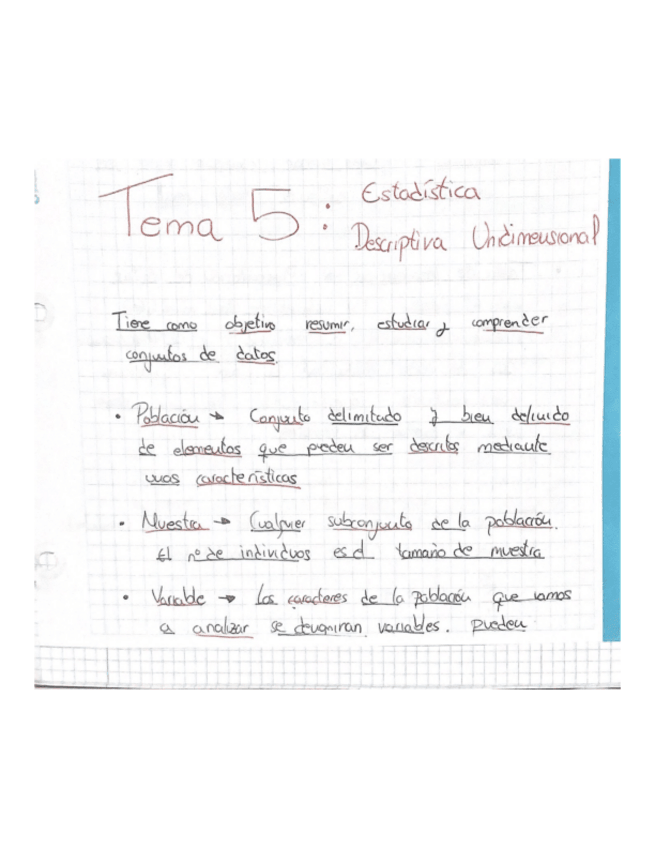 Tema 5: Estadística
Descriptiva Unidimensional
Tiene como objetivo resumir, estudiar y comprender
conjuntos de datos.
• Población → Conjunto delimitado y bien definido
de elementos que pueden ser descritos mediante
unas características
• Muestra → Cualquier subconjunto de la población.
El nº de individuos es el tamaño de muestra
• Variable → Los caracteres de la población que vamos
a analizar se variables. pueden